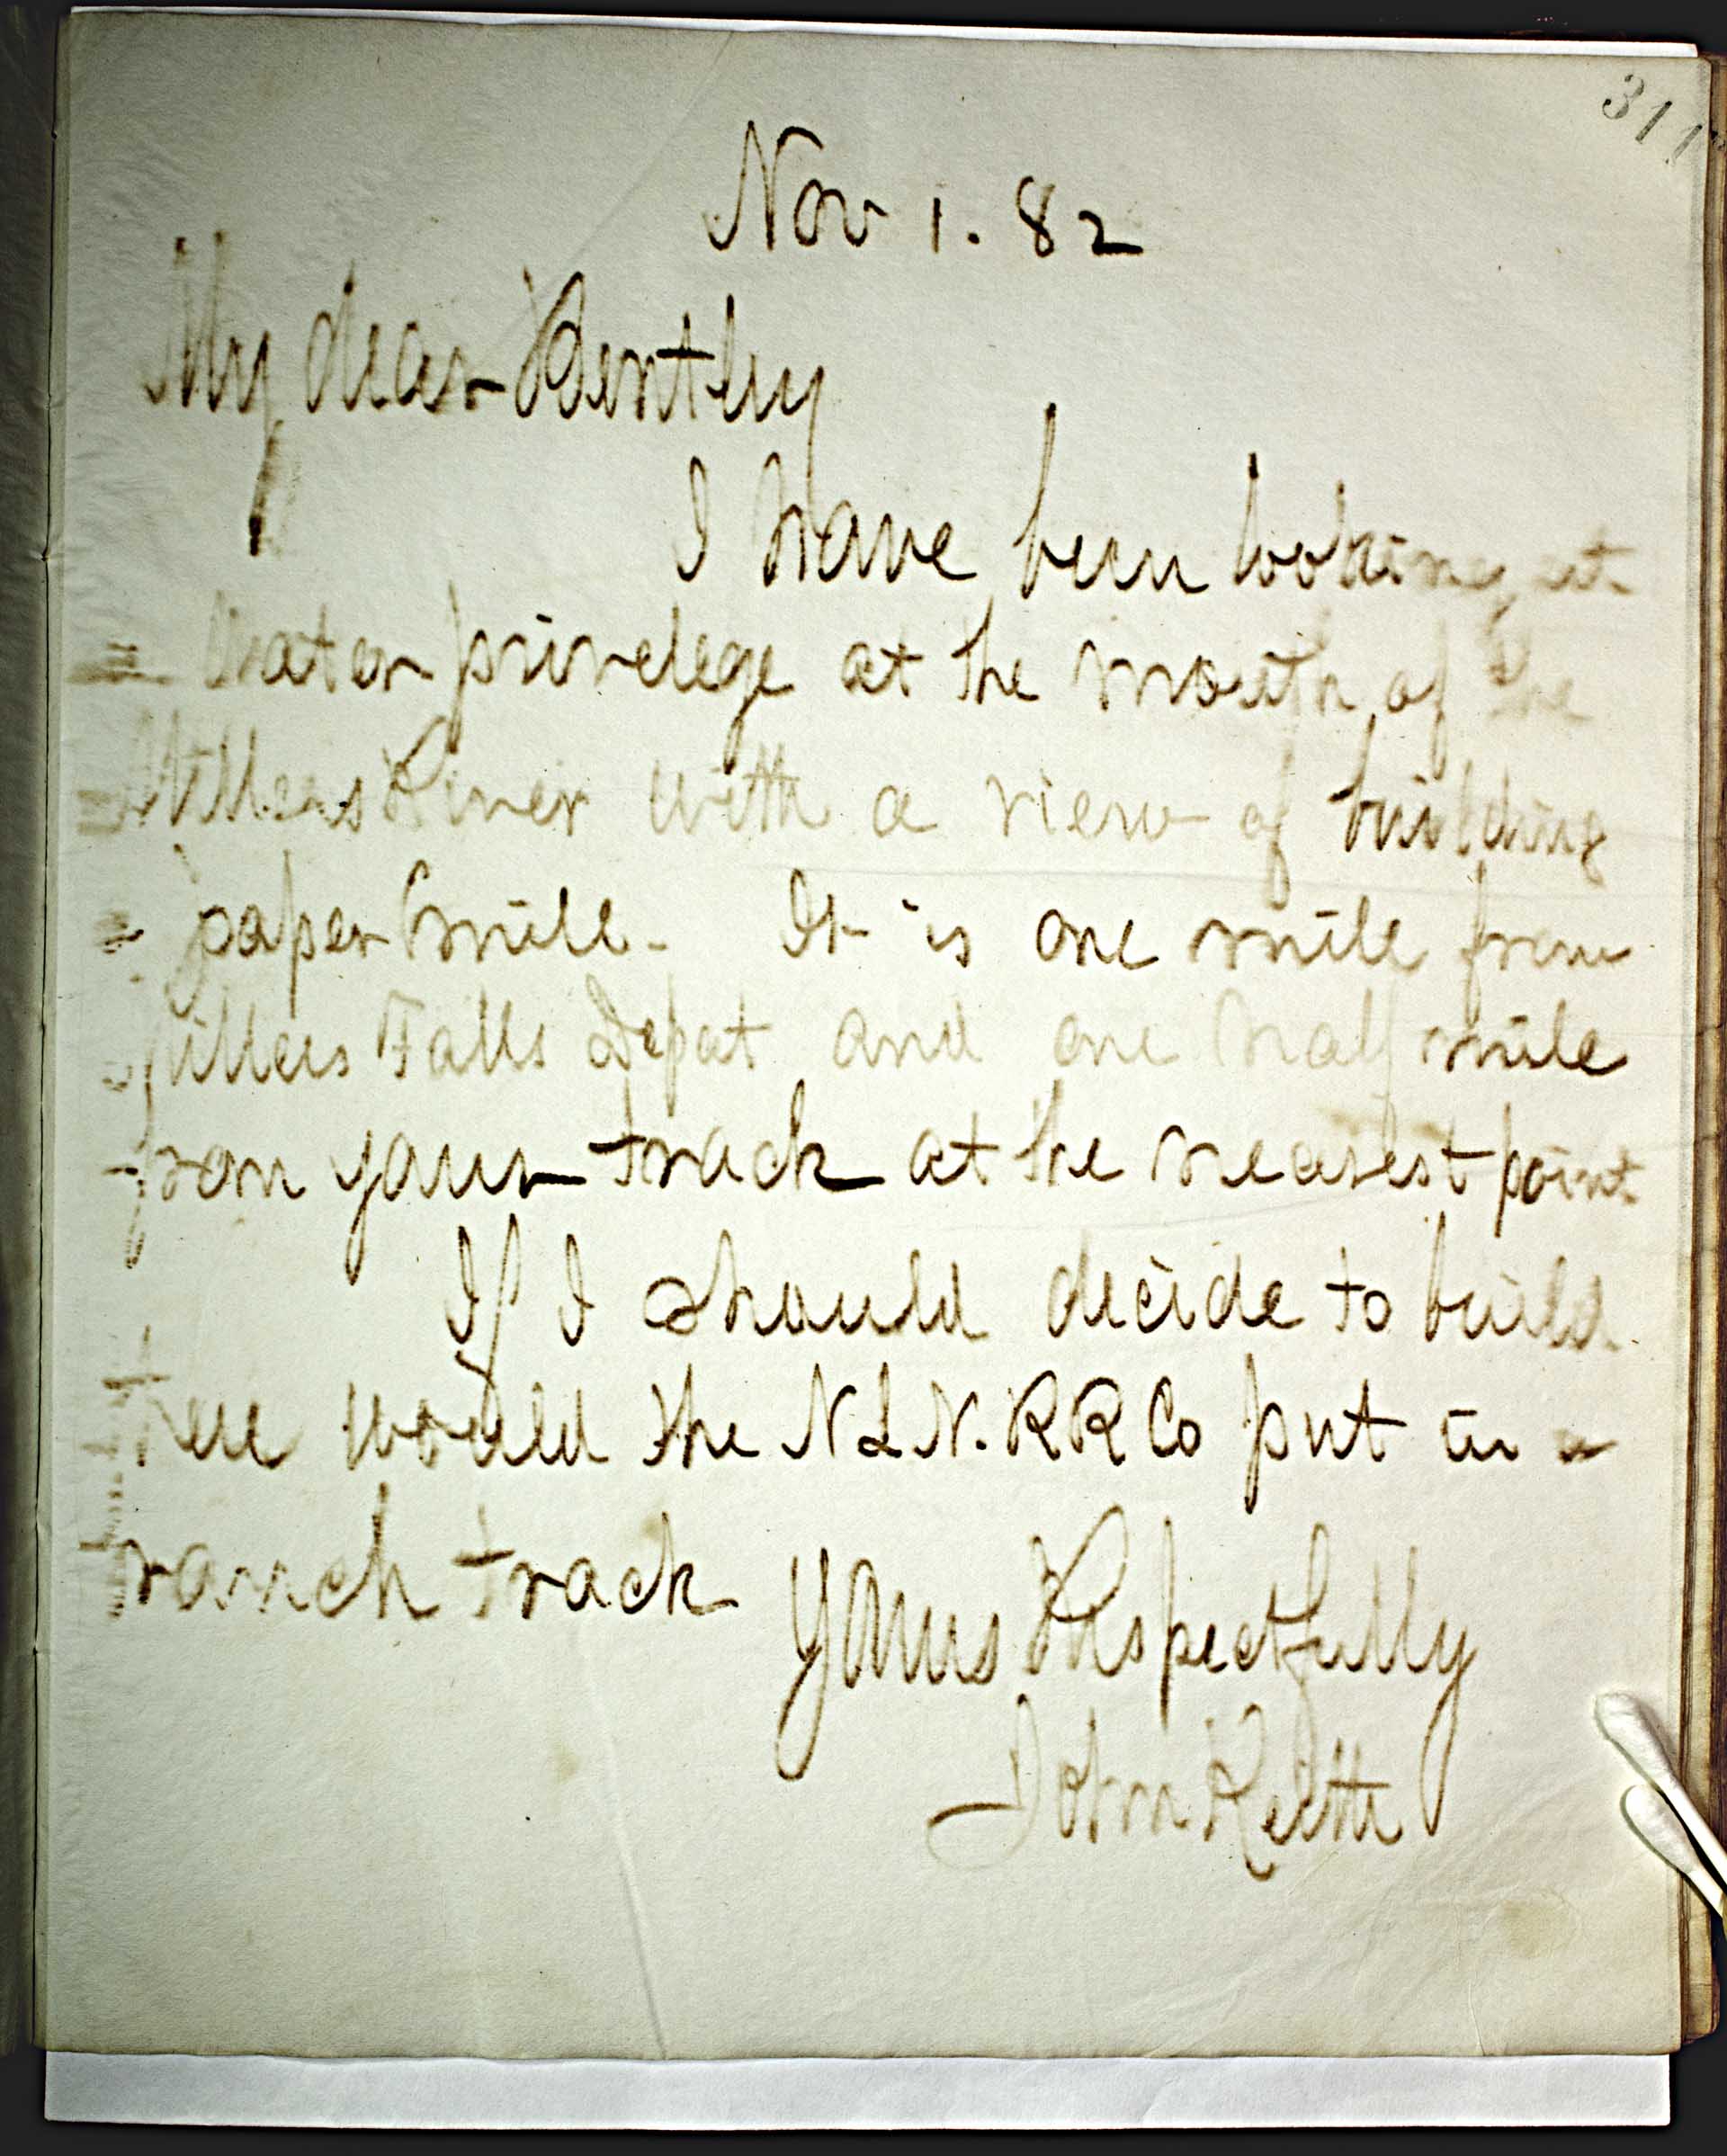 311
Nov 1. 82
My dear Bentley
I have been looking at
a water privelege at the mouth of the
Millers River with a view of building
a paper mill. It is one mile from
Millers Falls Depot and one half mile
from your track at the nearest point
If I should decide to build
here would the N L N. R R Co put in a
branch track
Yours Respectfully
John Keith